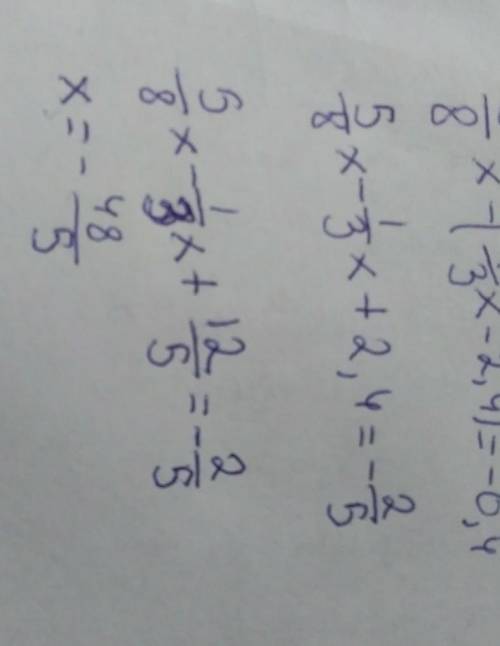 5/8 x - (1/3 x - 2,4) = -0,4
5/8 x - 1/3 x + 2,4 = - 2/5
5/8 x - 1/3 x + 12/5 = - 2/5
x = - 48/5